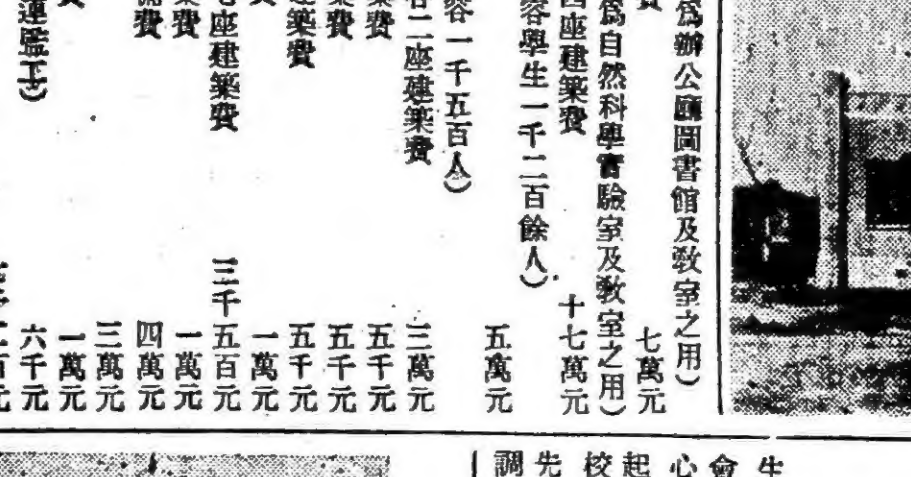 為辦公廳圖書館及教室之用）
費 七萬元
為自然科學實驗室及教室之用）
四座建築費 十七萬元
容學生一千二百餘人）
五萬元
容一千五百人）
二座建築費 三萬元
築費 五千元
築費 五千元
建築費 五千元
一萬元
座建築費 三千五百元
費 一萬元
備費 四萬元
三萬元
費 一萬元
運監工） 六千元
二百元
生
會
心
起
校
先
調